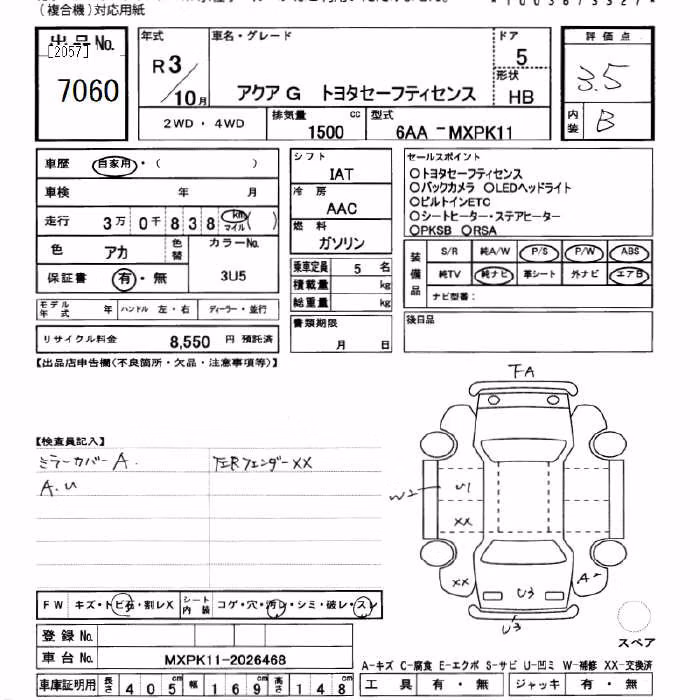 (複合機)対応用紙
出品No.
[2057]
7060
年式
R3/10月
車名・グレード
アクア G トヨタセーフティセンス
ドア
5
形状
HB
2WD ・ 4WD
排気量
1500 cc
型式
6AA －MXPK11
評価点
3.5
内装
B
車歴 自家用・( )
車検 年 月
走行 3万0千838 km マイル ( )
色 アカ 色替
カラーNo.
3U5
保証書 有・無
モデル年式 年 ハンドル 左・右 ディーラー・並行
リサイクル料金 8,550 円 預託済
シフト
IAT
冷房
AAC
燃料
ガソリン
乗車定員 5 名
積載量 kg
総重量 kg
書類期限
月 日
セールスポイント
○トヨタセーフティセンス
○バックカメラ ○LEDヘッドライト
○ビルトインETC
○シートヒーター・ステアヒーター
○PKSB ○RSA
装備品
S/R 純A/W P/S P/W ABS
純TV 純ナビ 革シート 外ナビ エアB
ナビ型番:
後日品
【出品店申告欄(不良箇所・欠品・注意事項等)】
【検査員記入】
ミラーカバーA.
A.U
左Rフェンダー XX
FA
W2
U1
XX
XX
A2
U3
U3
スペア
FW キズ・トビ石・割レX
シート内装 コゲ・穴・汚レ・シミ・破レ・スレ
登録No.
車台No. MXPK11-2026468
車庫証明用 長さ 405cm 幅 169cm 高さ 148cm
A-キズ C-腐食 E-エクボ S-サビ U-凹ミ W-補修 XX-交換済
工具 有・無 ジャッキ 有・無